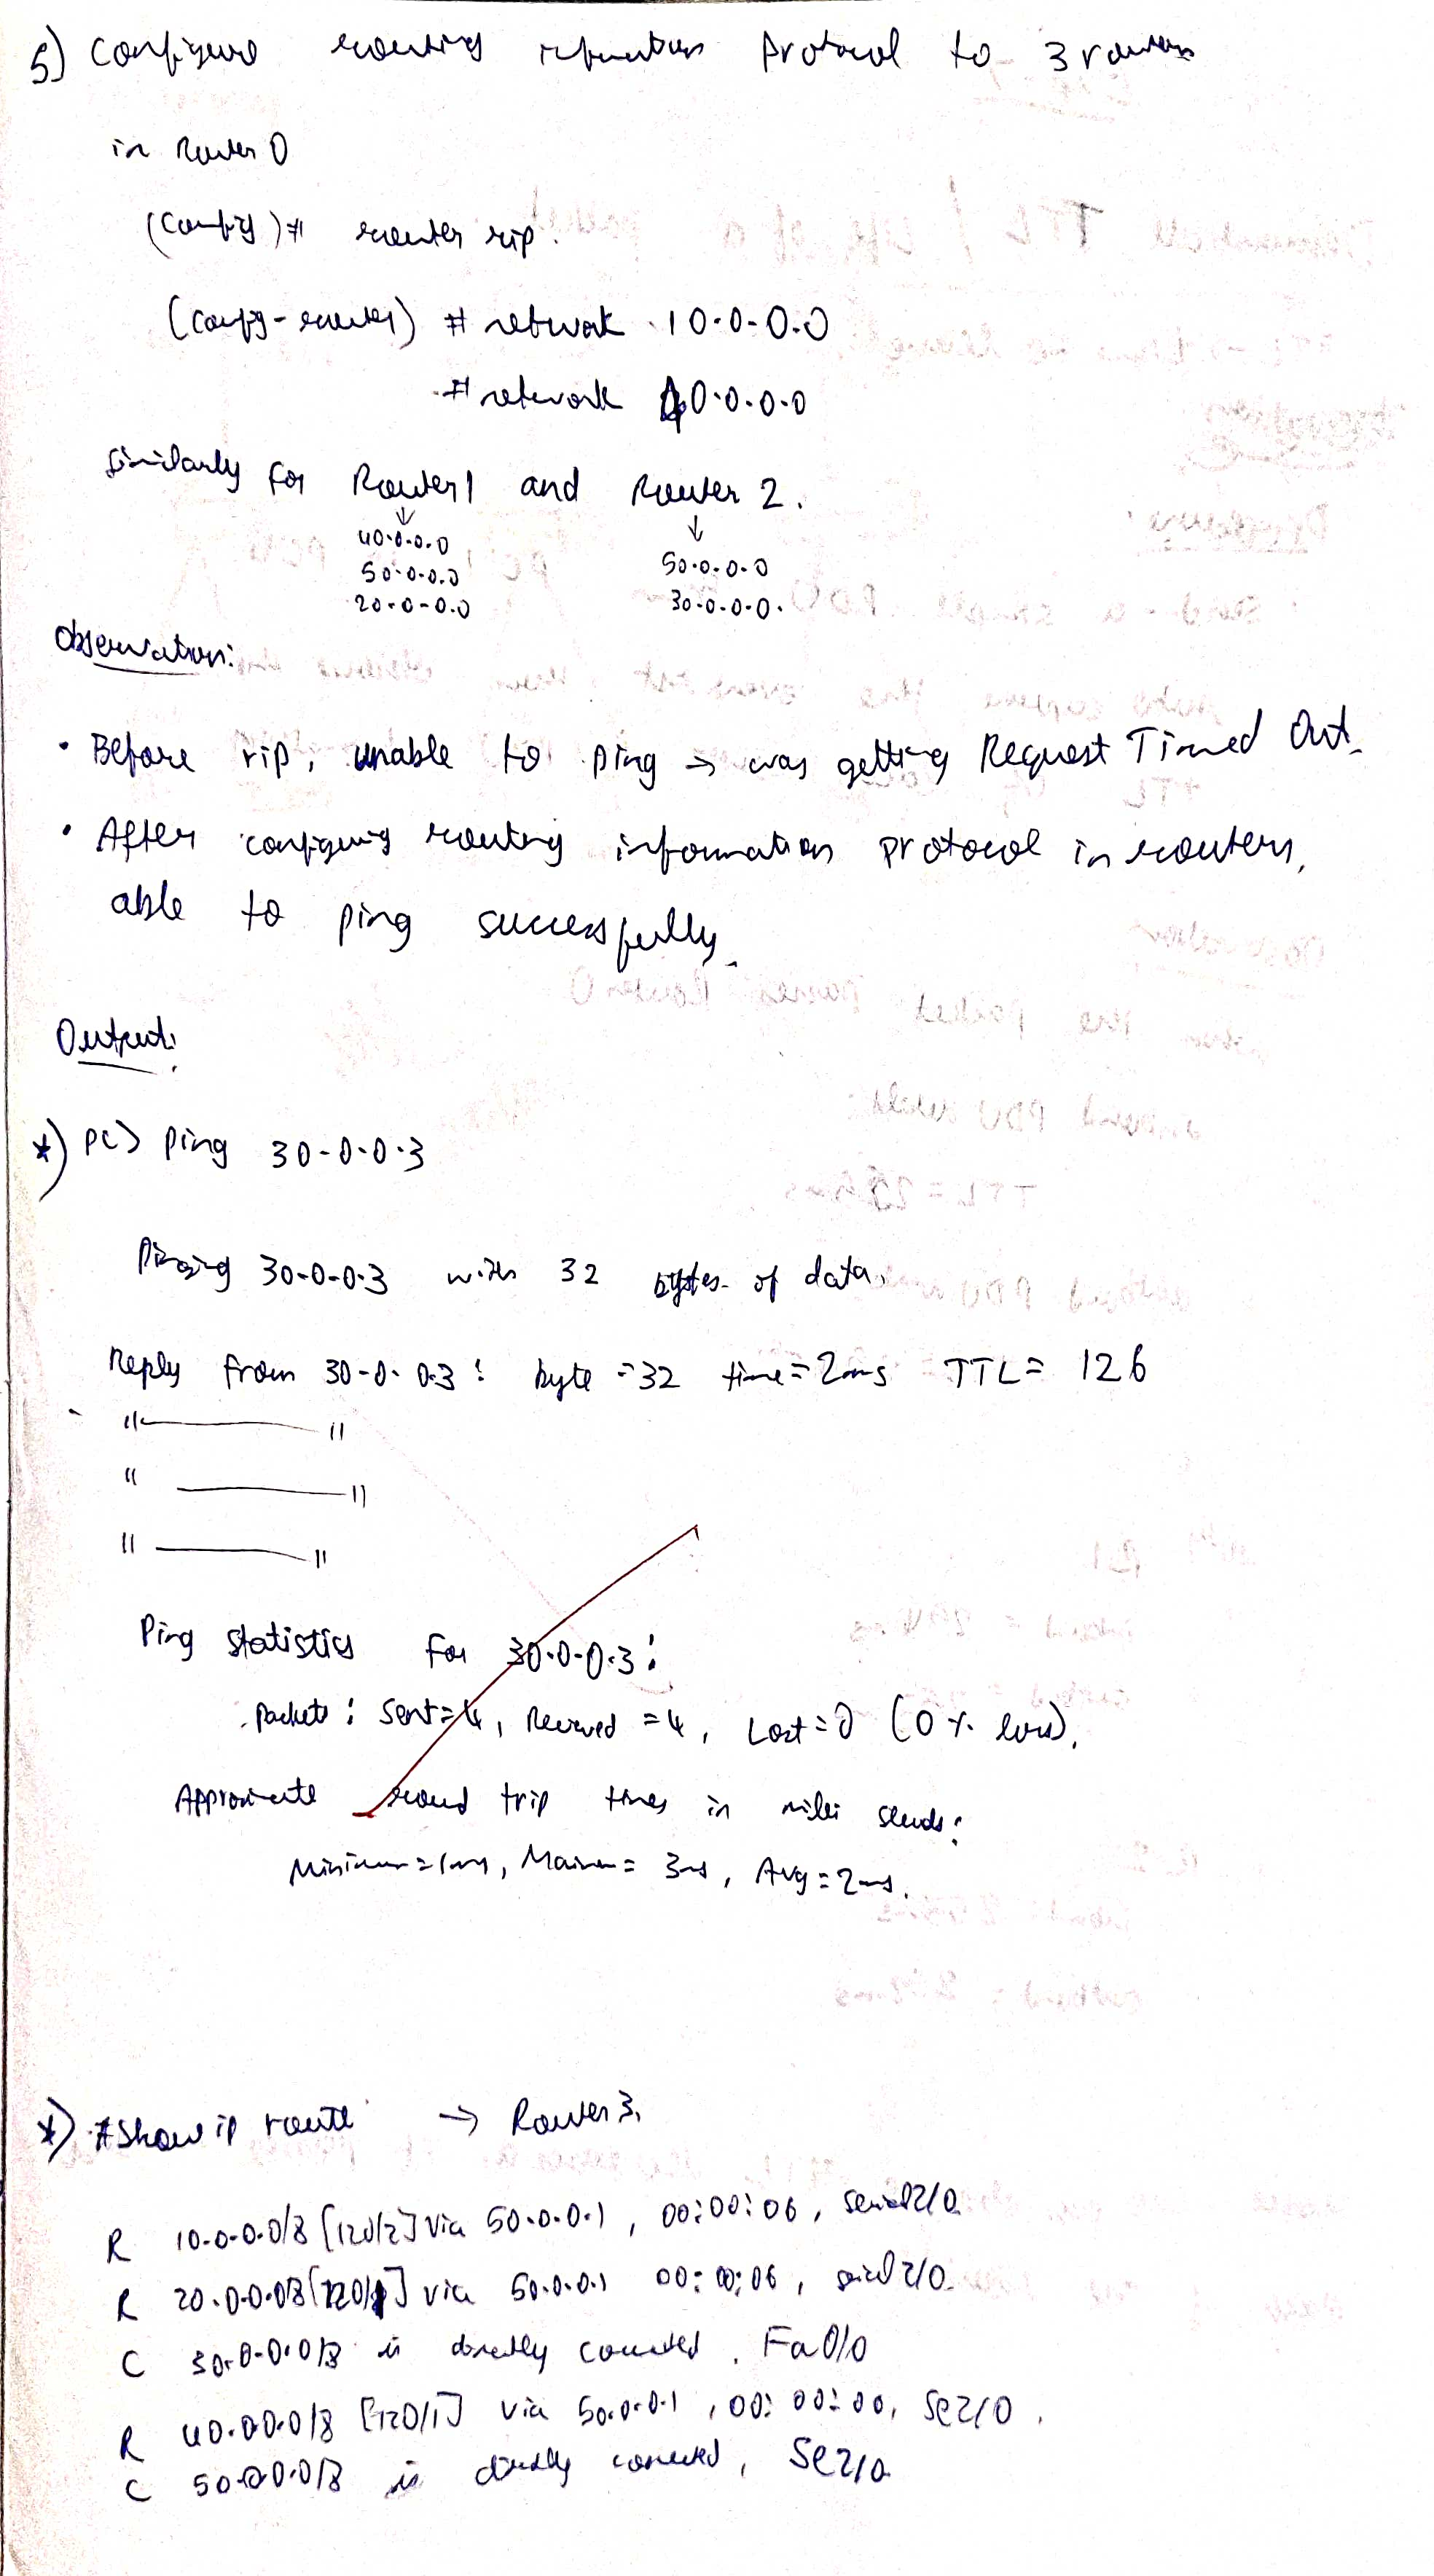 5) Configure routing information protocol to 3 routers
in Router 0
(config)# router rip.
(config-router) # network 10.0.0.0
# network 40.0.0.0
Similarly for Router1 and Router 2.
↓ ↓
40.0.0.0 50.0.0.0
50.0.0.0 30.0.0.0.
20.0.0.0
Observation:
• Before rip, unable to ping → was getting Request Timed Out.
• After configuring routing information protocol in routers,
able to ping successfully.
Output:
*) PC> ping 30.0.0.3
Pinging 30.0.0.3 with 32 bytes of data.
Reply from 30.0.0.3: byte =32 time=2ms TTL= 126
" —— "
" —— "
" —— "
Ping statistics for 30.0.0.3:
Packets: Sent=4, Received =4, Lost=0 (0% loss),
Approximate round trip times in milli seconds:
Minimum=1ms, Maximum= 3ms, Avg=2ms.
*) #Show ip route → Router 3.
R 10.0.0.0/8 [120/2] via 50.0.0.1, 00:00:06, serial2/0
R 20.0.0.0/8 [120/1] via 50.0.0.1 00:00:06, serial 2/0
C 30.0.0.0/8 is directly connected, Fa0/0
R 40.0.0.0/8 [120/1] via 50.0.0.1, 00:00:00, Se2/0.
C 50.0.0.0/8 is directly connected, Se2/0